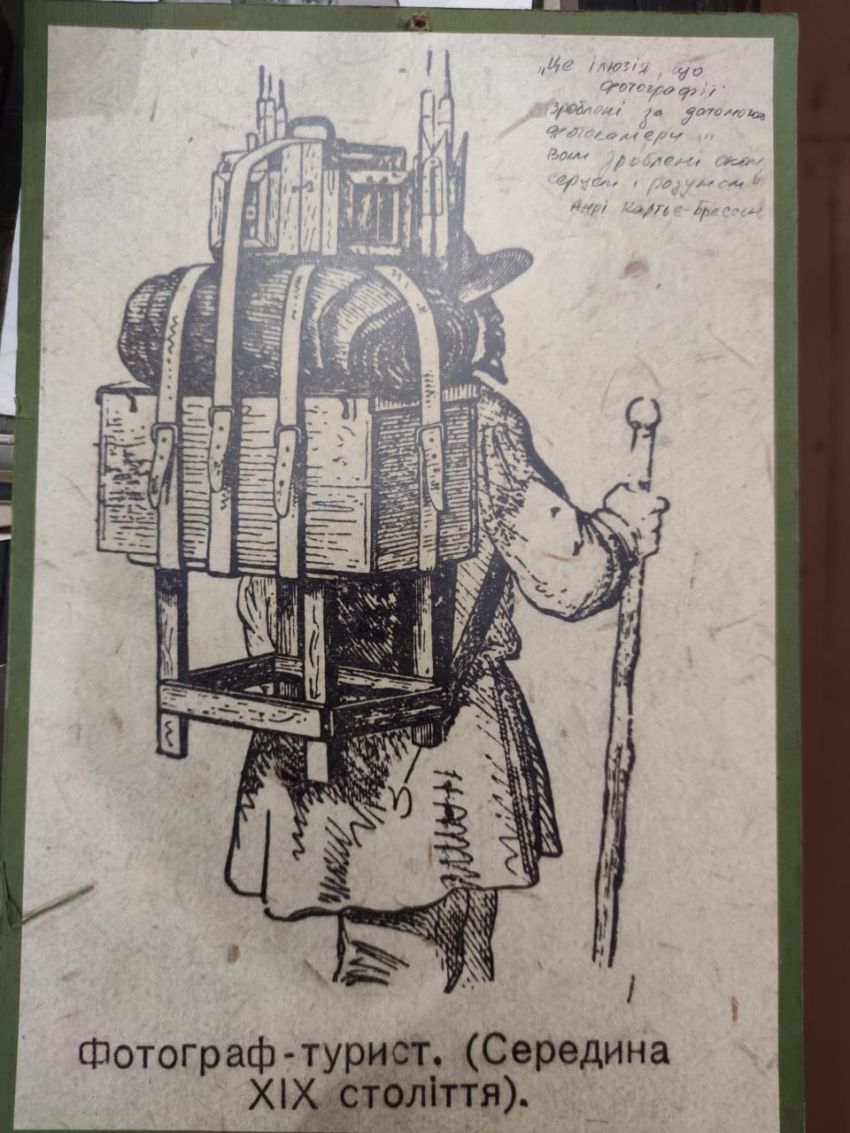 „Це ілюзія, що
фотографії
зроблені за допомогою
фотокамери..."
Вони зроблені оком
серцем і розумом"
Анрі Картьє-Брессон
Фотограф-турист. (Середина
XIX століття).